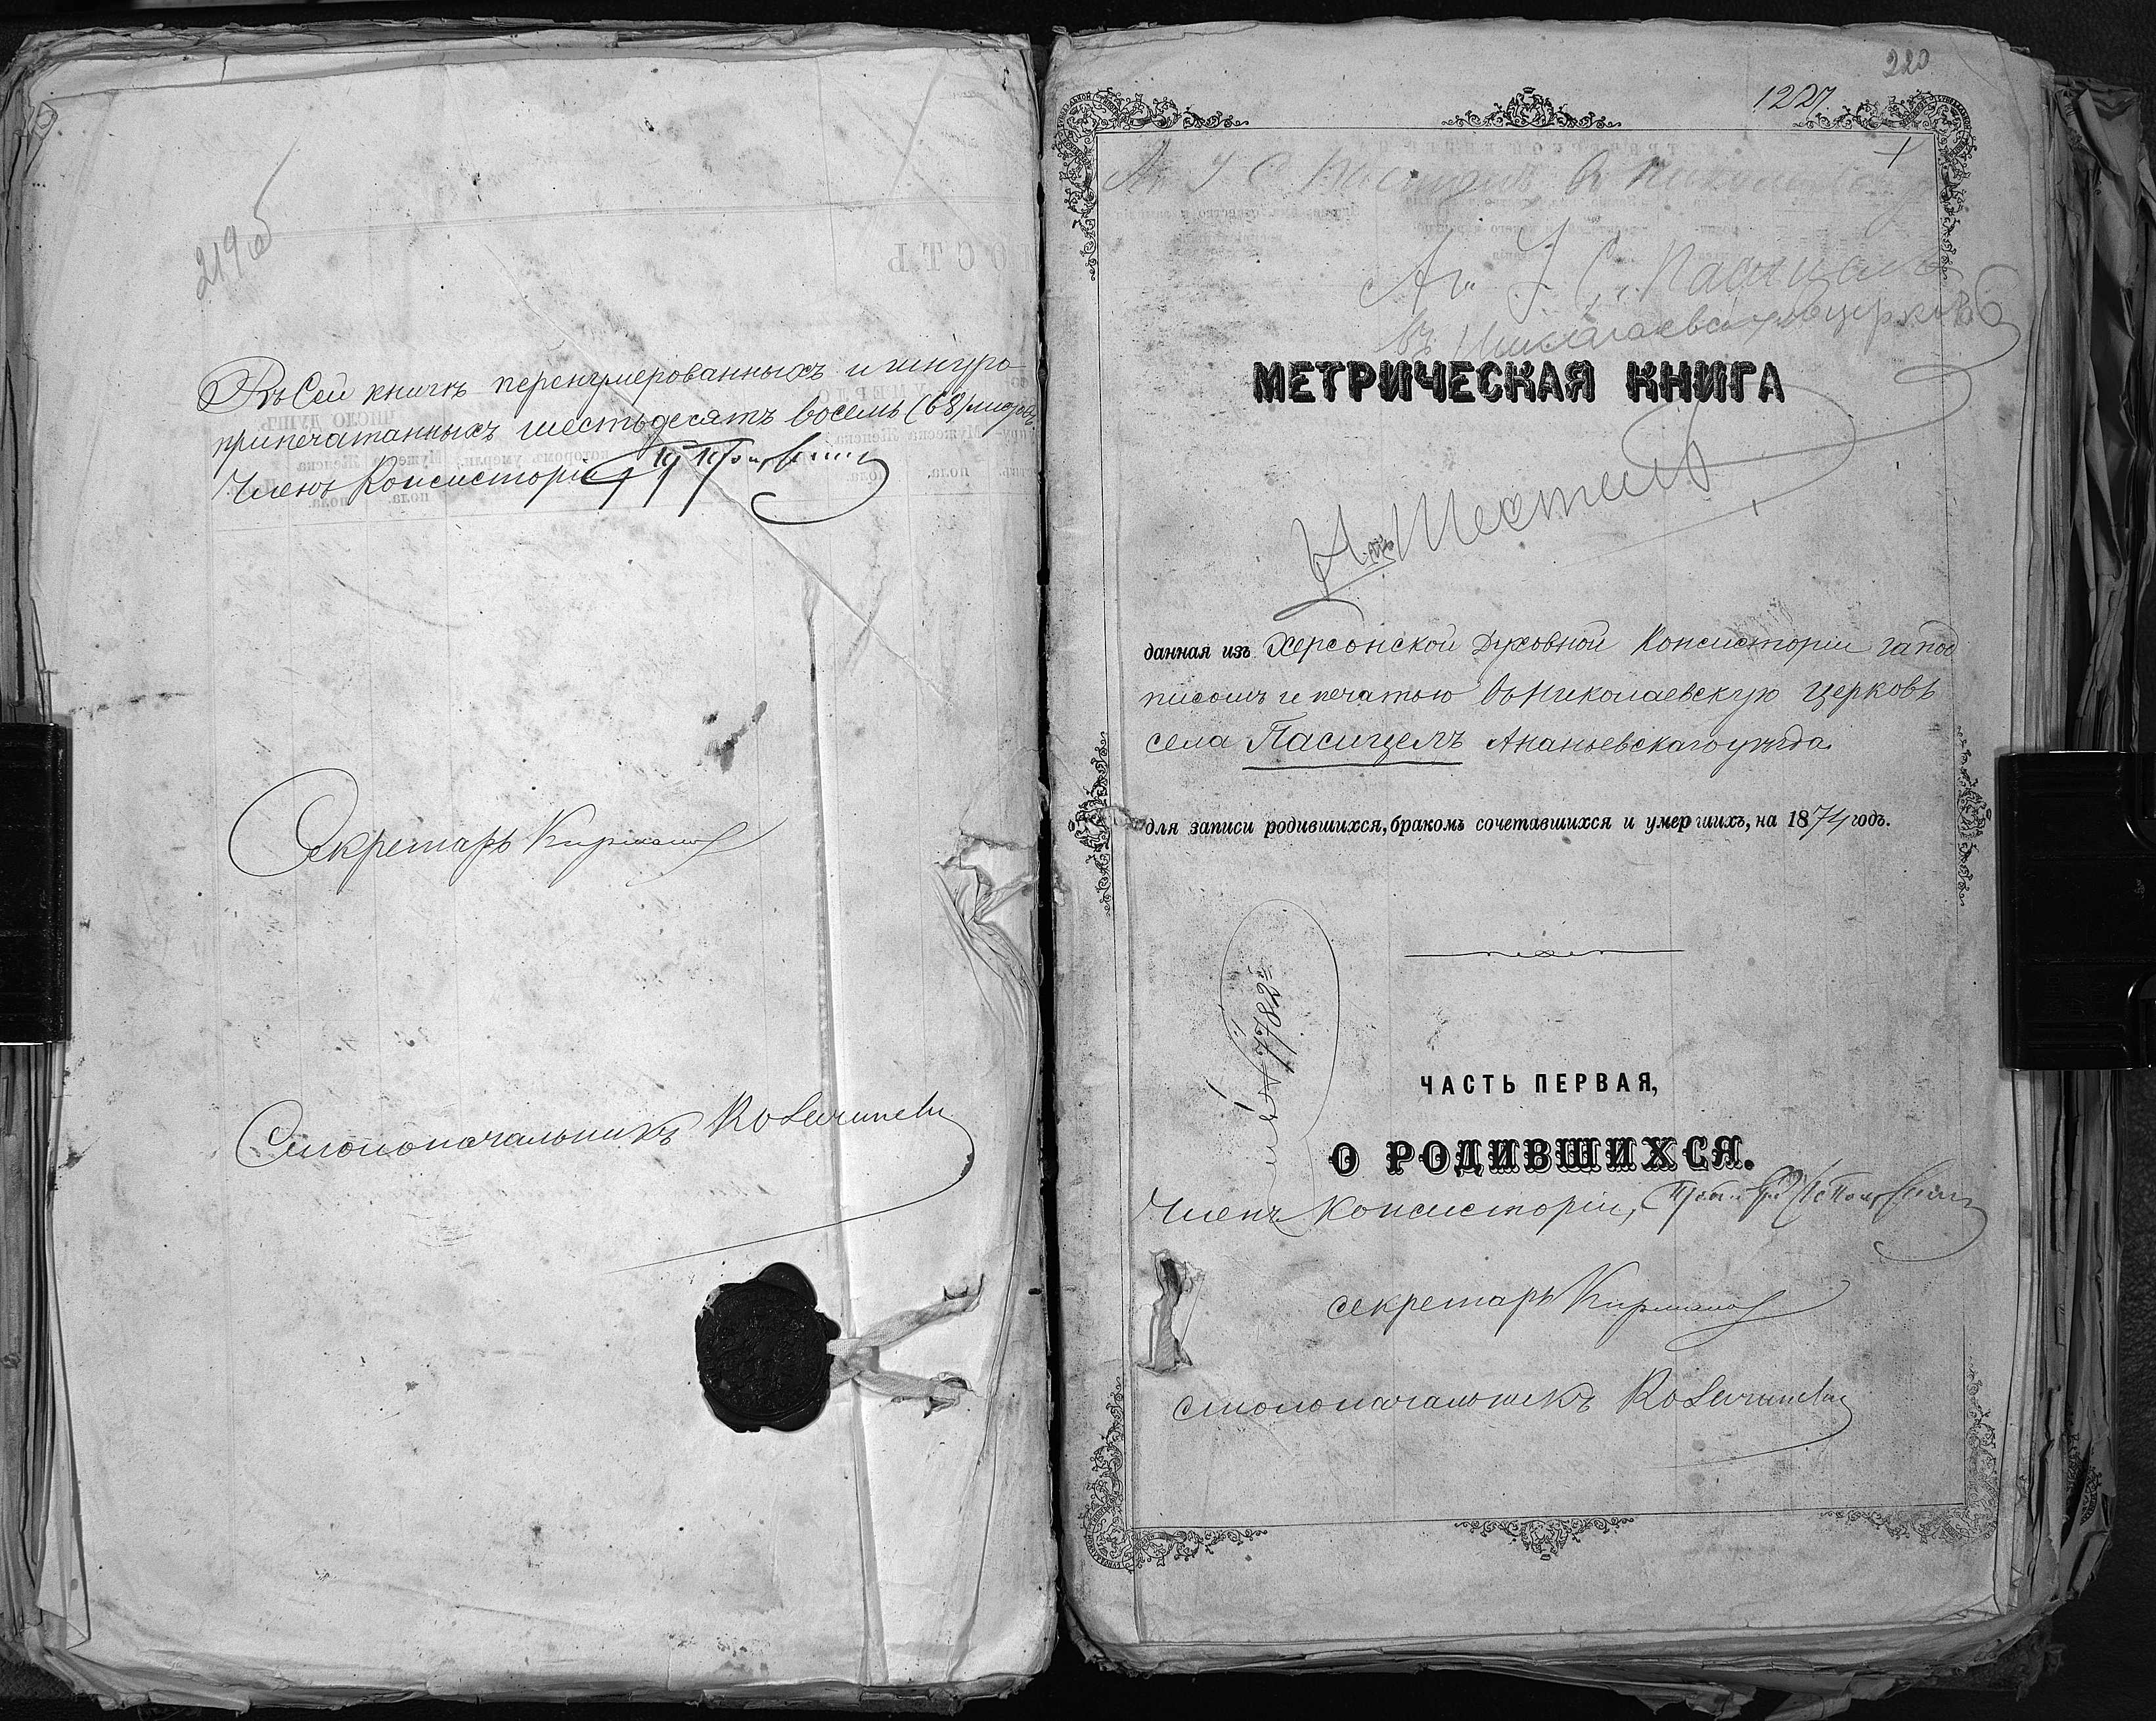 219 об
Въ сей книгѣ перенумерованныхъ и шнуро-
припечатанныхъ шестьдесятъ восемь (68) листовъ
Членъ Консисторіи
Секретарь
Столоначальникъ
220
1227.
Ан. У. С. Пасицелъ
въ Николаевскую церковь
МЕТРИЧЕСКАЯ КНИГА
данная изъ Херсонской Духовной Консисторіи за под
писомъ и печатью въ Николаевскую церковь
села Пасицелъ Ананьевскаго уѣзда
для записи родившихся, бракомъ сочетавшихся и умершихъ, на 1874 годъ.
№ 7782
ЧАСТЬ ПЕРВАЯ,
О РОДИВШИХСЯ.
Членъ Консисторіи,
секретарь
столоначальникъ